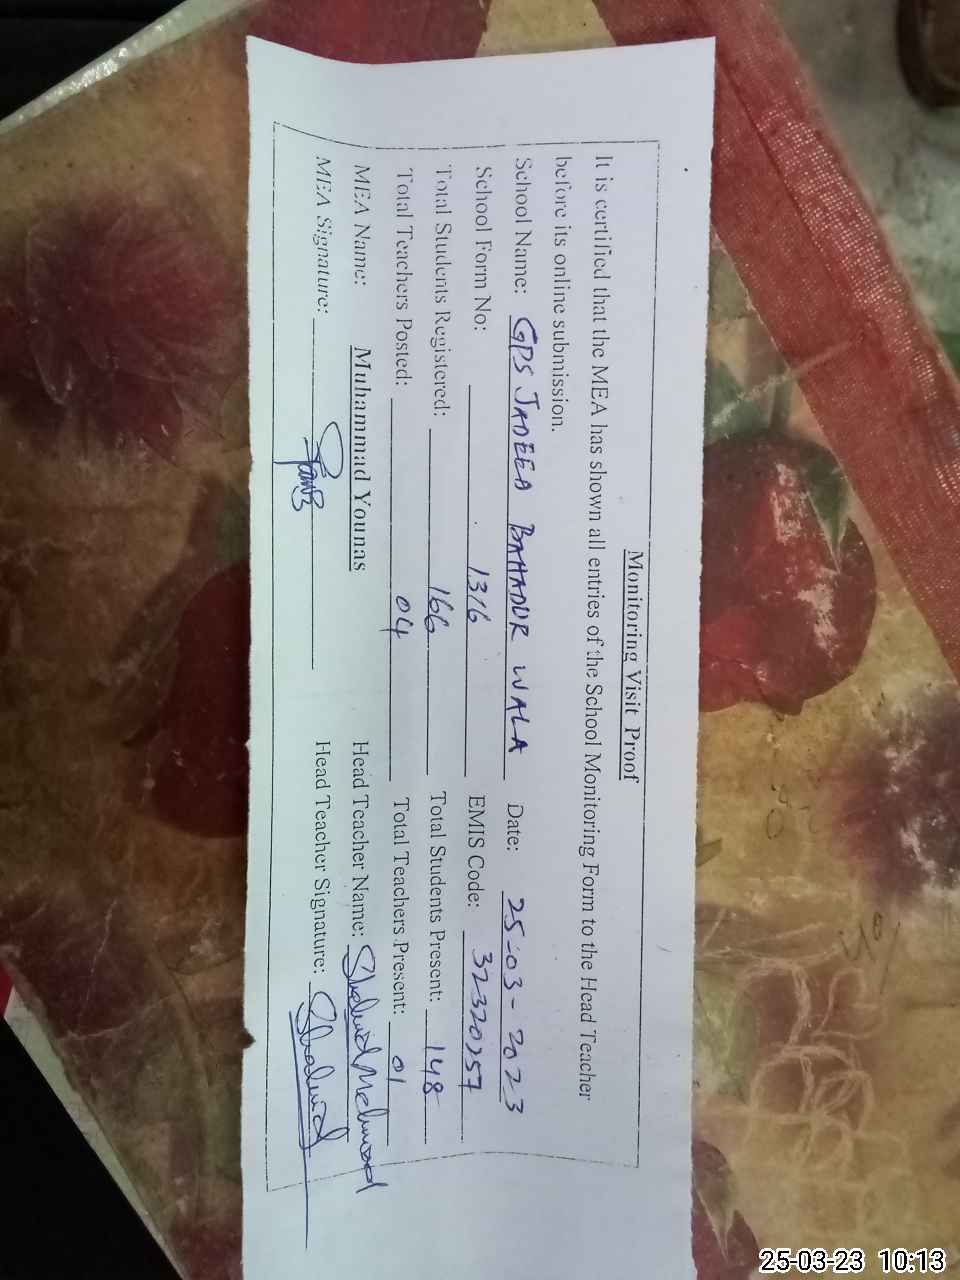 Monitoring Visit Proof
It is certified that the MEA has shown all entries of the School Monitoring Form to the Head Teacher
before its online submission.
School Name: GPS JADEED BAHADUR WALA Date: 25-03-2023
School Form No: 1316 EMIS Code: 32320257
Total Students Registered: 166 Total Students Present: 148
Total Teachers Posted: 04 Total Teachers Present: 01
MEA Name: Muhammad Younas Head Teacher Name: Shahid Mehmood
MEA Signature: Head Teacher Signature: Shahid
25-03-23 10:13